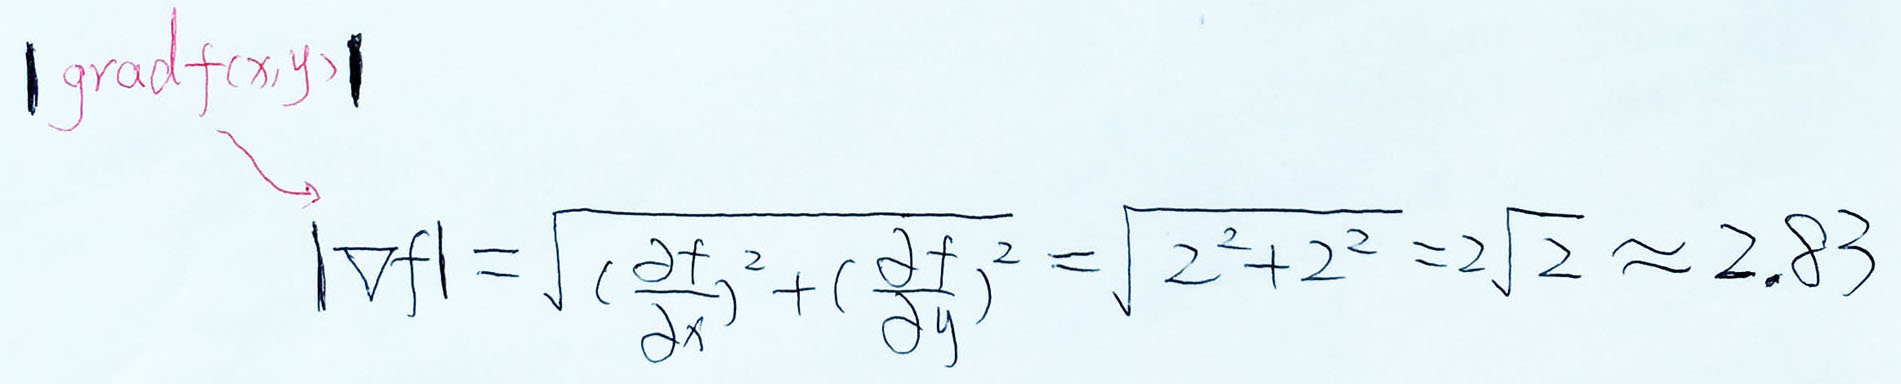 |grad f(x,y)|
|∇f| = √((∂f/∂x)² + (∂f/∂y)²) = √(2²+2²) = 2√2 ≈ 2.83